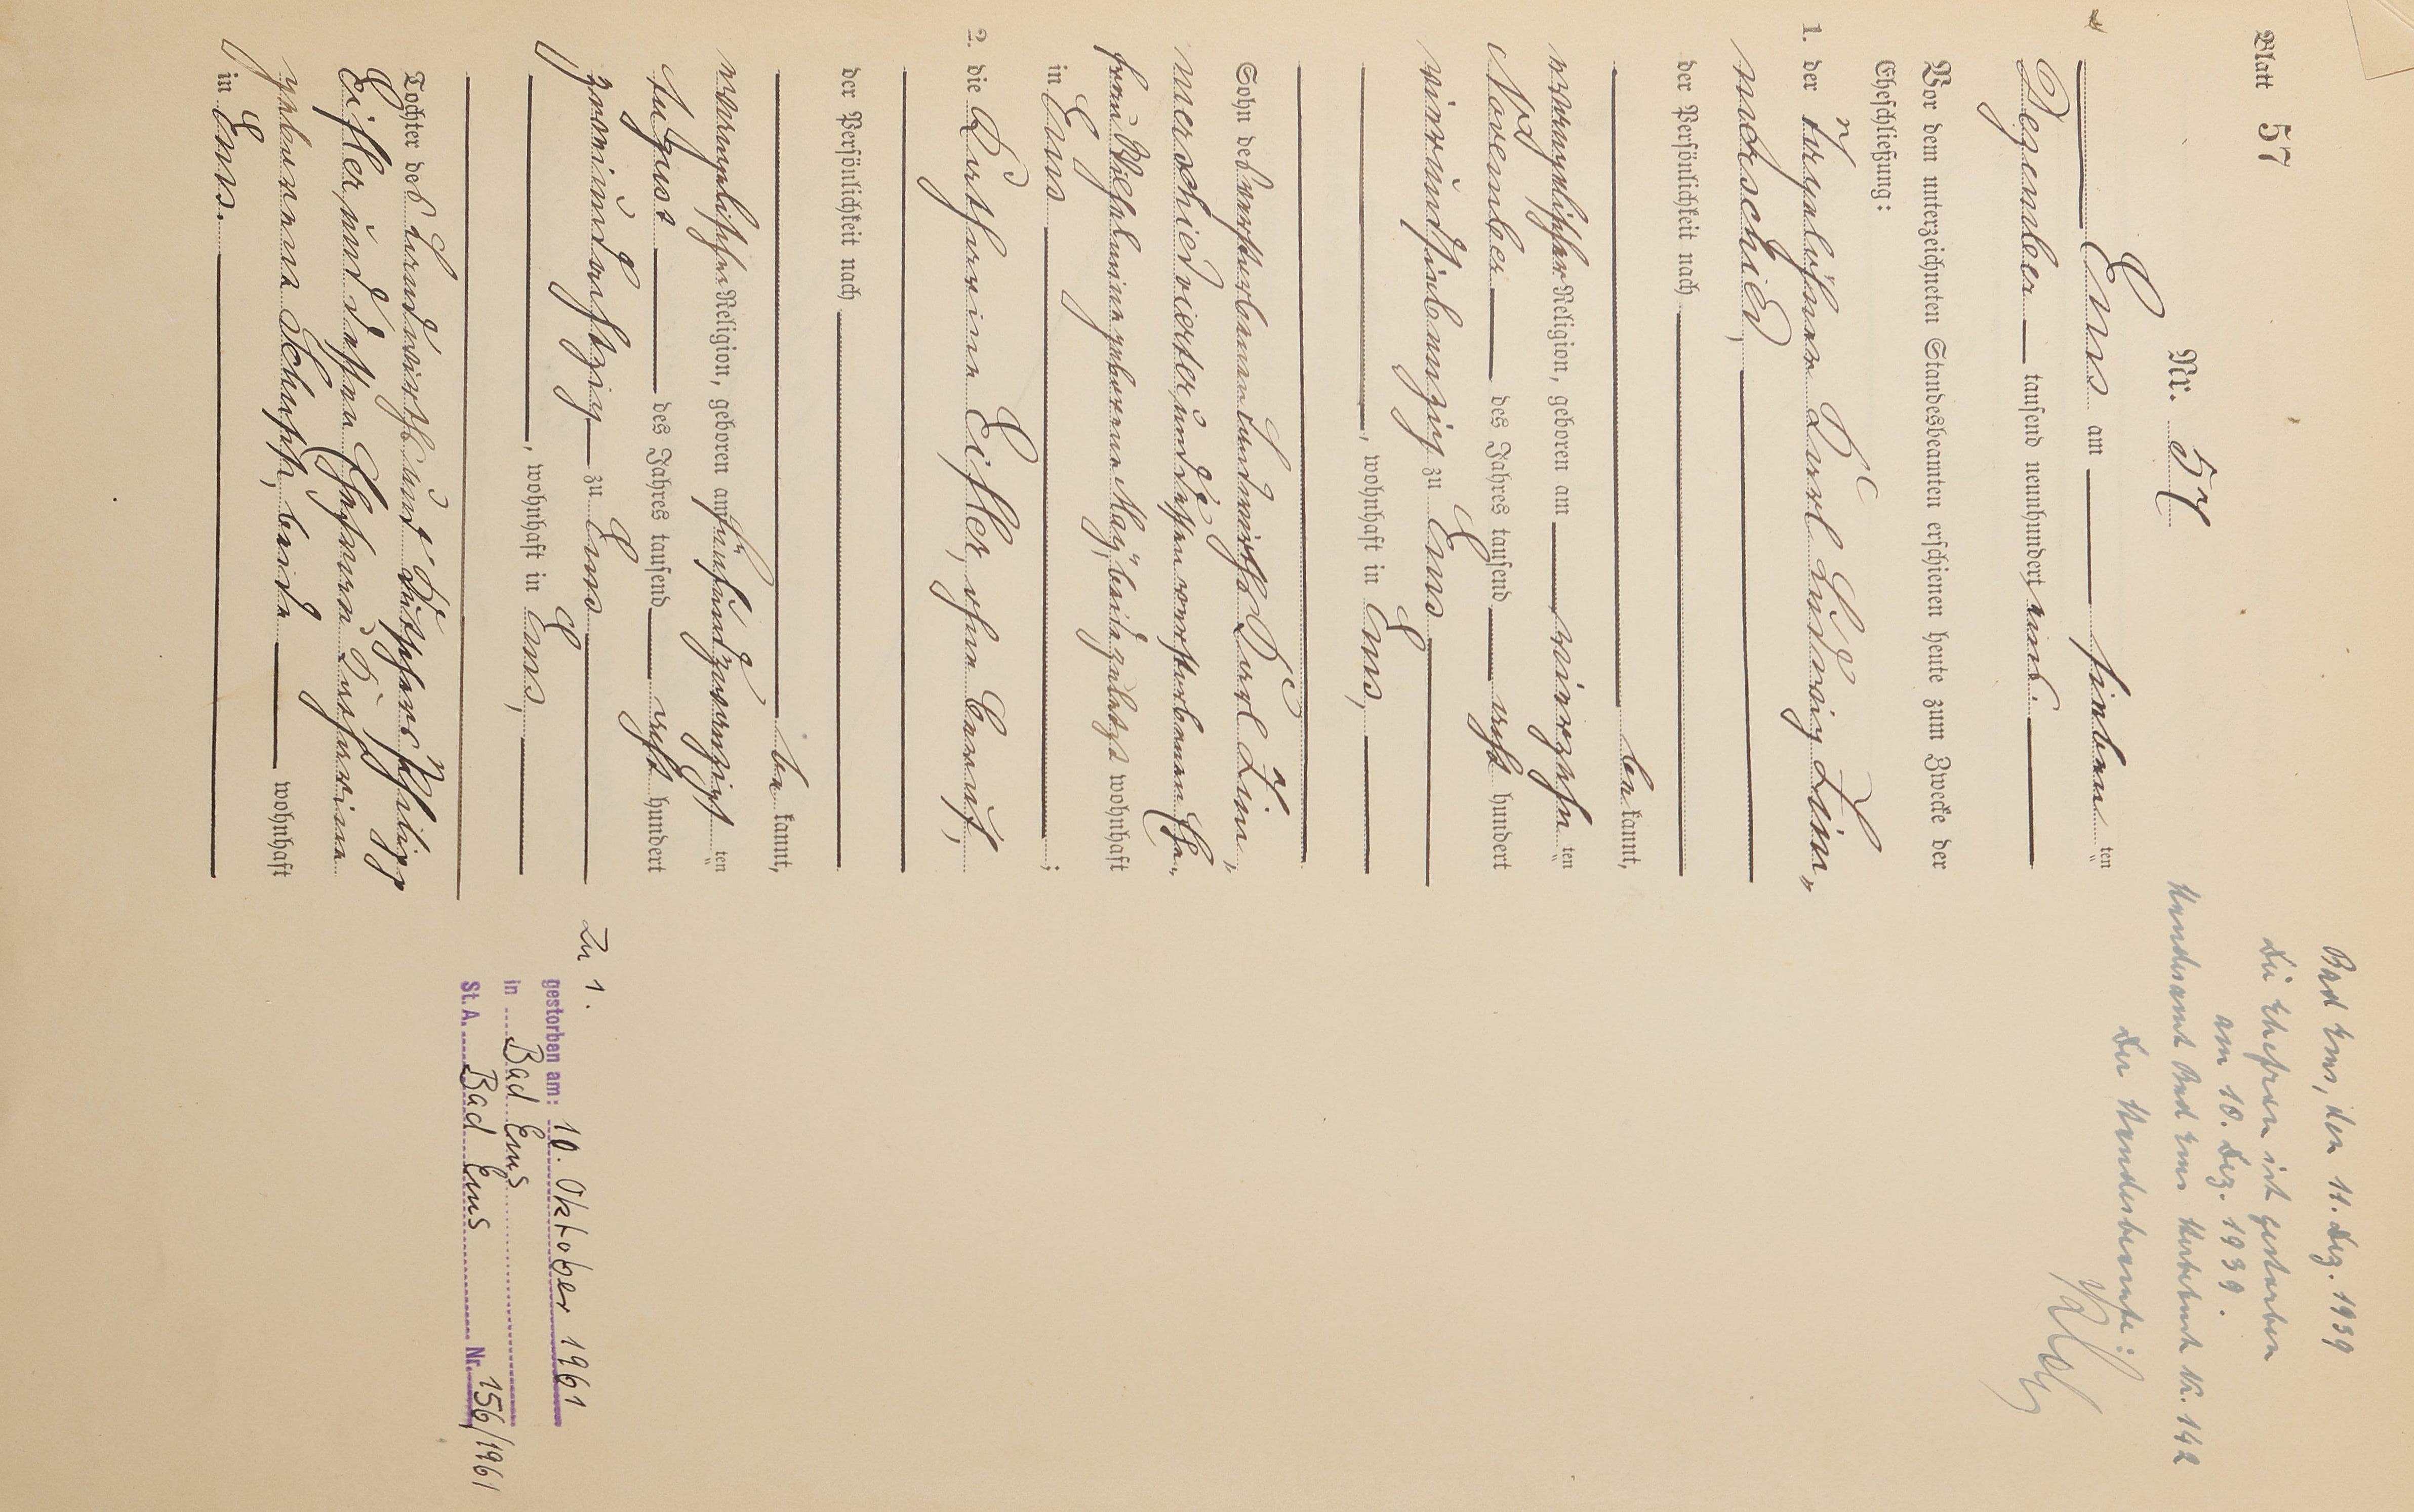 Blatt 57
Nr. 57
Ems am siebenten
Dezember tausend neunhundert eins.
Vor dem unterzeichneten Standesbeamten erschienen heute zum Zwecke der
Eheschließung:
1. der Tagelöhner Karl Ludwig Lim„
merschied,
der Persönlichkeit nach
bekannt,
evangelischer Religion, geboren am vierzehnten
November des Jahres tausend acht hundert
vierundsiebenzig zu Ems
, wohnhaft in Ems,
Sohn des verstorbenen Landwirths Karl Lim„
merschied vierter, und dessen verstorbenen Ehe„
frau Wilhelmine geborene May, beide zuletzt wohnhaft
in Ems ;
2. die Katharine Eifler, ohne Beruf,
der Persönlichkeit nach
bekannt,
evangelischer Religion, geboren am fünfundzwanzigsten
August des Jahres tausend acht hundert
zu Ems
, wohnhaft in Ems,
Tochter des Landwirths und Philipp
Eifler, und dessen Ehefrau Katharine
geborene Schupp, beide wohnhaft
in Ems.
Bad Ems, den 11. Dez. 1939
Die Ehefrau ist gestorben
am 10. Dez. 1939.
Standesamt Bad Ems Sterbebuch Nr. 142
Der Standesbeamte:
Zu 1.
gestorben am: 10. Oktober 1961
in Bad Ems
St. A. Bad Ems Nr. 156/1961